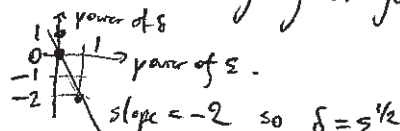 1 power of δ
0 1
power of ε.
-1
-2
slope = -2 so δ = ε^{1/2}